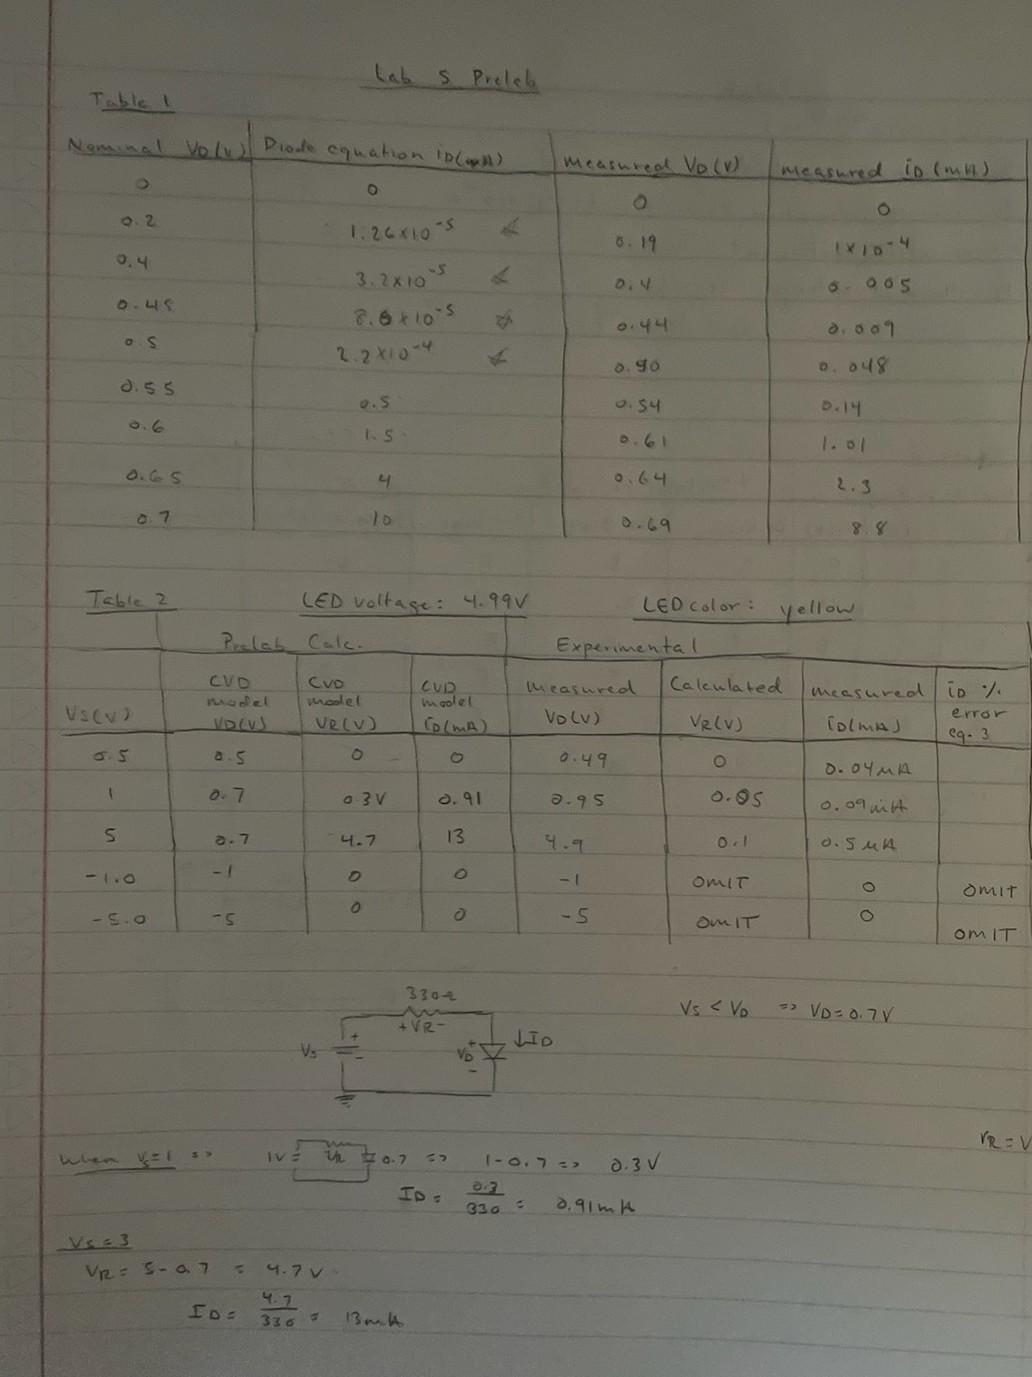 Lab 5 Prelab
Table 1
Nominal VD(V) Diode equation iD(mA) Measured VD(V) Measured iD(mA)
0 0 0 0
0.2 1.26x10-5 0.19 1x10-4
0.4 3.2x10-5 0.4 0.005
0.45 8.6x10-5 0.44 0.009
0.5 2.2x10-4 0.50 0.048
0.55 0.5 0.54 0.14
0.6 1.5 0.61 1.01
0.65 4 0.64 2.3
0.7 10 0.69 8.8
Table 2 LED voltage: 4.99V LED color: yellow
Prelab Calc. Experimental
VS(V) CVD model VD(V) CVD model VR(V) CVD model iD(mA) Measured VD(V) Calculated VR(V) Measured iD(mA) iD % error eq. 3
0.5 0.5 0 0 0.49 0 0.04μA
1 0.7 0.3V 0.91 0.95 0.05 0.09
5 0.7 4.7 13 4.9 0.1 0.5μA
-1.0 -1 0 0 -1 OMIT 0 OMIT
-5.0 -5 0 0 -5 OMIT 0 OMIT
330Ω
+VR-
Vs + - VD + - ↓ID
Vs < VD => VD=0.7V
VR = V
When Vs=1 => 1V VR 0.7 => 1-0.7 => 0.3V
ID = 0.3/330 = 0.91mA
Vs=3
VR = 5-0.7 = 4.7V
ID = 4.7/330 = 13mA